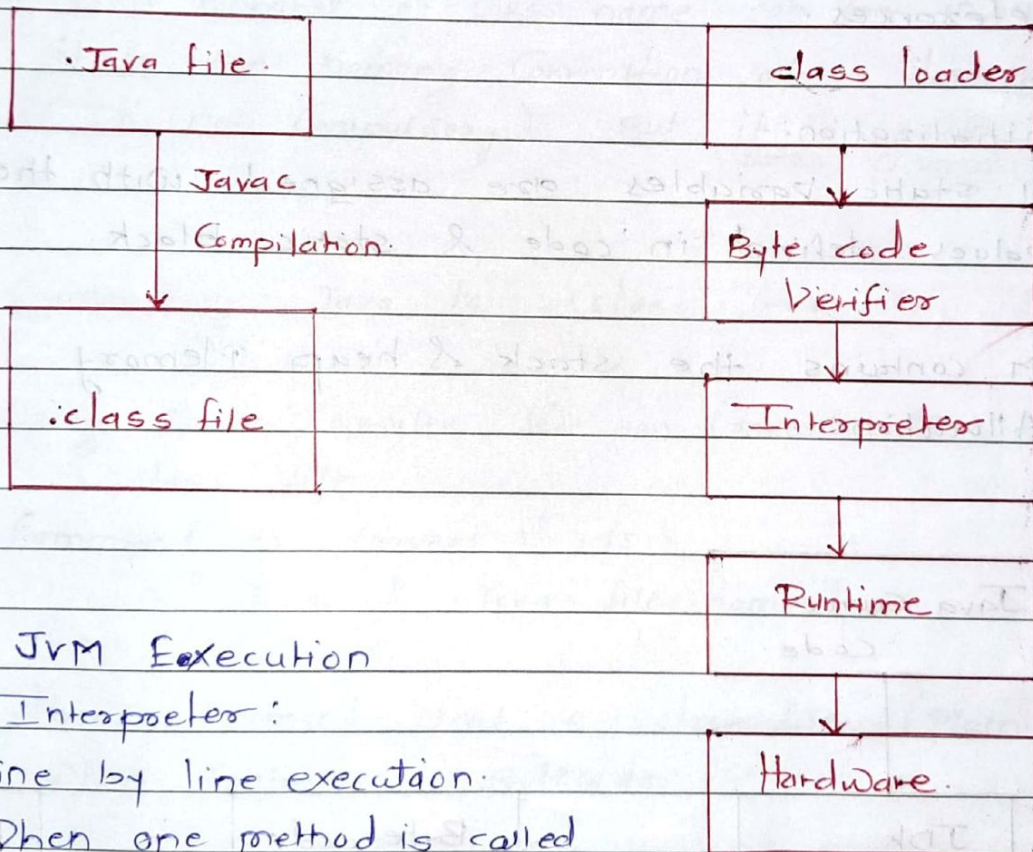 .Java file.
Javac
Compilation.
.class file
class loader
Byte code
Verifier
Interpreter
Runtime
Hardware.
JVM Execution
Interpreter:
ine by line execution.
When one method is called